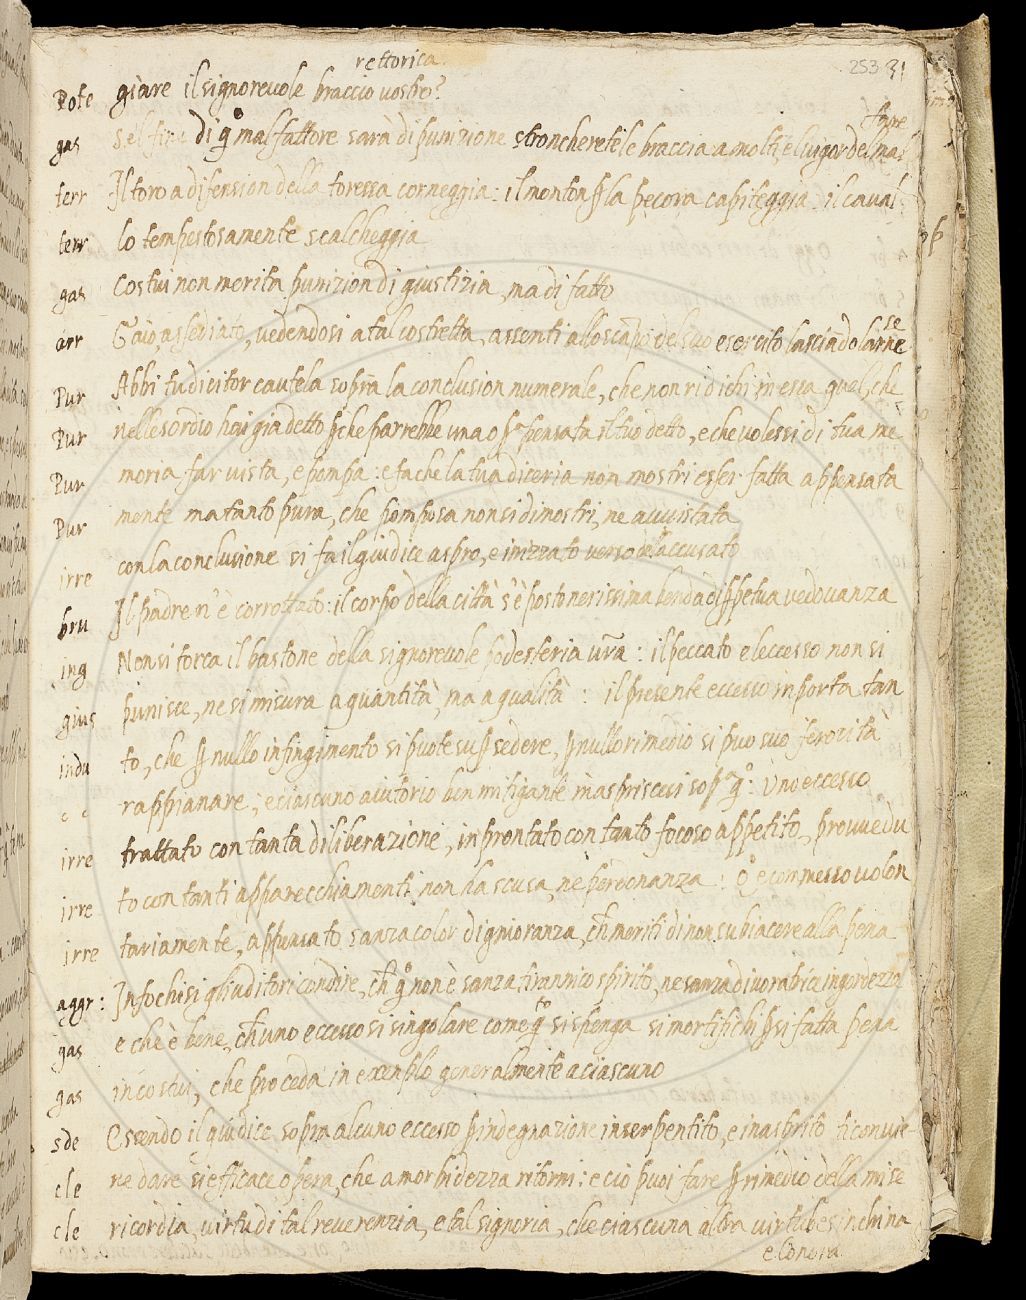 rettorica.
253 31
Pote giàre il signorevole braccio vostro?
gas Sel fine di qo malfattore sarà di punizione stroncherete le braccia a molti, e l vigor del mal
fare
terr Il toro a difension della toressa corneggia: il monton p la pecora capiteggia. il caval
terr lo tempestosamente scalcheggia
gas Costui non merita punizion di giustizia, ma di fatto
arr Gaio assediato, vedendosi a tal costretta, assentì allo scapo del suo esercito lasciādo l'arne
se
Pur Abbi tu dicitor cautela sopra la conclusion numerale, che non ridichi in essa quel, che
Pur nell esordio hai già detto pche parrebbe una o pa pensata il tuo detto, e che volessi di tua me
Pur moria far vista, e pompa: e fa che la tua diceria non mostri esser fatta appensata
Pur mente ma tanto pura, che pomposa non si dimostri, ne avvistata
irre con la conclusione si fa il giudice aspro, e inizzato verso de laccusato
bru Il padre n'è corrottato: il corpo della città s'è posto nerissima benda di ppetua vedovanza
ing Non si torca il bastone della signorevole podesteria vra: il peccato e leccesso non si
gius punisce, ne si misura a quantità, ma a qualità: il presente eccesso importa tan
indu to, che p nullo infingimento si puote supsedere, p nullo rimedio si può suo ferocità
c c rappianare; e ciascuno aiutorio ben mitigante inasprisceci sopa qo: Uno eccesso
irre trattato con tanta diliberazione, inprontato con tanto focoso appetito, provvedu
irre to con tanti apparecchiamenti non ha scusa, ne perdonanza: Qo è commesso volon
irre tariamente, appensato sanza color d'ignioranza, ch meriti di non subiacere alla pena
aggr: Infochisi gliuditori condire, ch qo non è sanza tirannico spirito, ne sanza divoratrice ingordezza
gas e che è bene, ch uno eccesso si singolare come qto si spenga si mortifichi p si fatta pena
gas in costui, che proceda in exemplo generalmente a ciascuno
sde Essendo il giudice sopra alcuno eccesso p indegnazione inserpentito, e inasprito ti convie-
cle ne dare si efficace opera, che a morbidezza ritorni: e ciò puoi fare p rimedio della mise
cle ricordia, virtu di tal reverenzia, e tal signoria, che ciascuna altra virtù le s inchina
e l'onora.